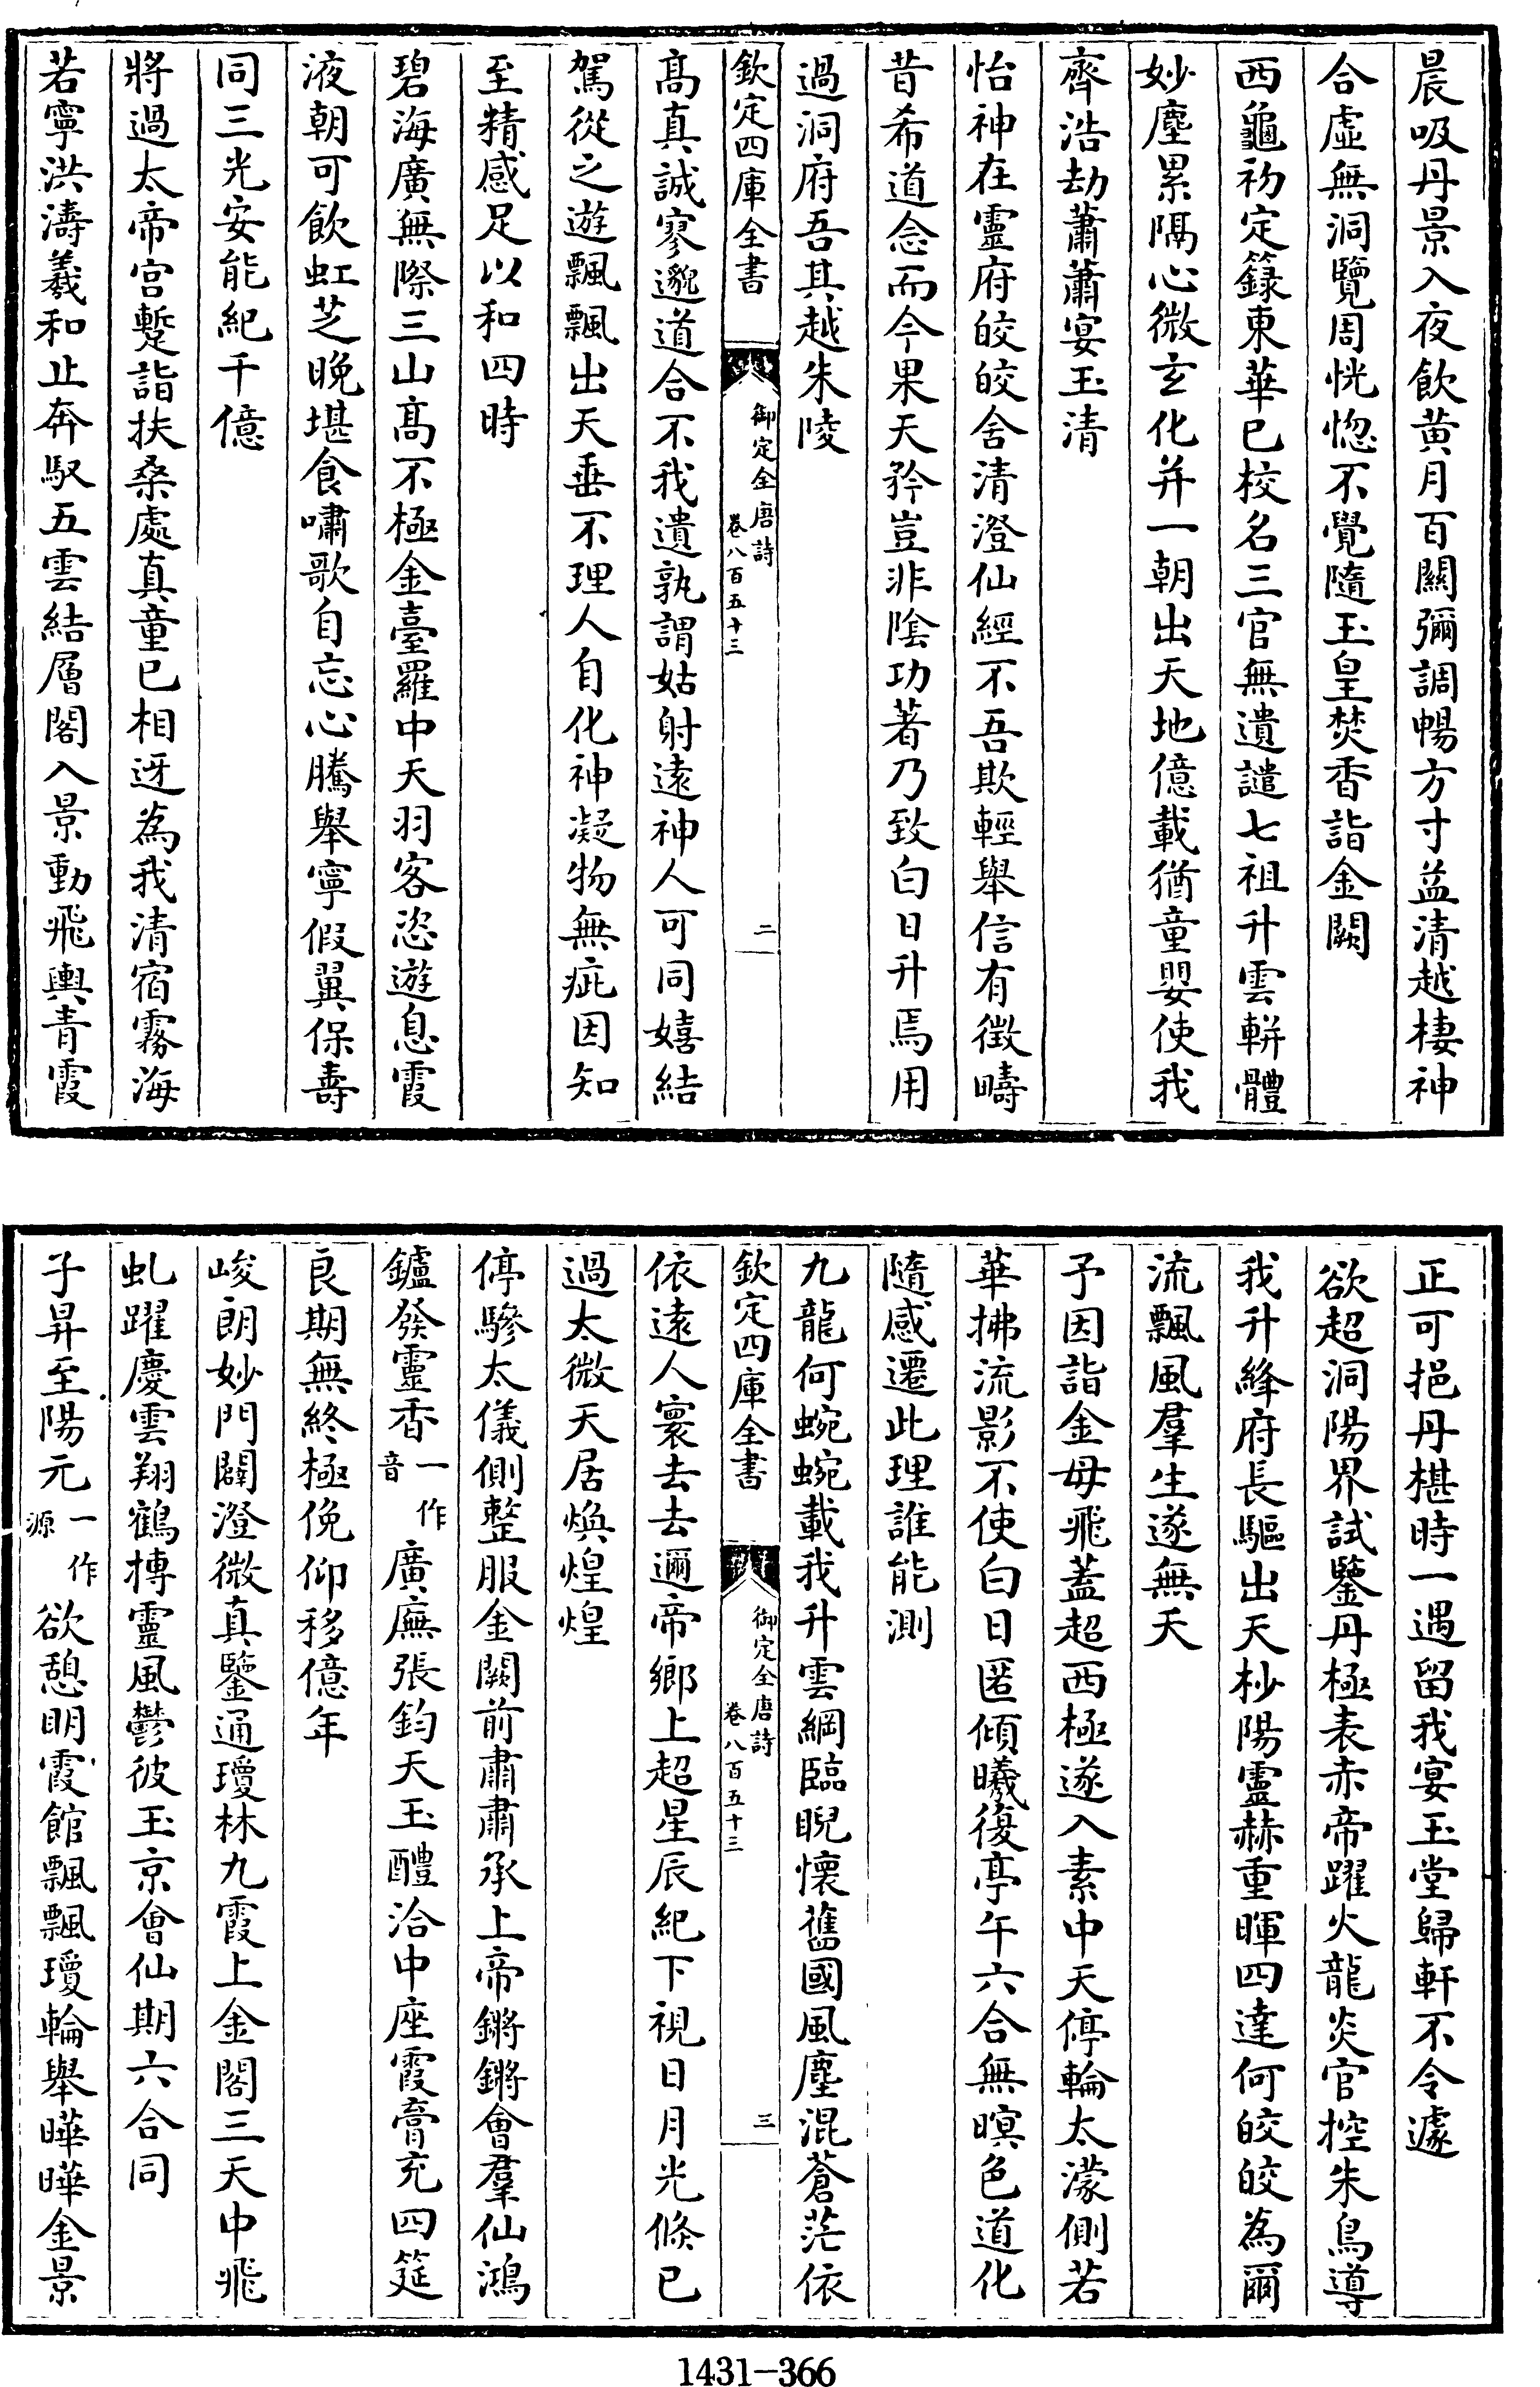 晨吸丹景入夜飲黄月百關彌調暢方寸益清越棲神
合虛無洞覽周恍惚不覺隨玉皇焚香詣金闕
西龜初定錄東華已校名三官無遺譴七祖升雲輧體
妙塵累隔心微玄化并一朝出天地億載猶童嬰使我
齊浩劫蕭蕭宴玉清
怡神在靈府皎皎含清澄仙經不吾欺輕舉信有徴疇
昔希道念而今果天矜豈非陰功著乃致白日升焉用
過洞府吾其越朱陵
欽定四庫全書
御定全唐詩
卷八百五十三
二
髙真誠寥邈道合不我遺孰謂姑射遠神人可同嬉結
駕從之遊飄飄出天垂不理人自化神凝物無疵因知
至精感足以和四時
碧海廣無際三山髙不極金臺羅中天羽客恣遊息霞
液朝可飲虹芝晚堪食嘯歌自忘心騰舉寧假翼保壽
同三光安能紀千億
將過太帝宫蹔詣扶桑處真童已相迓為我清宿霧海
若寧洪濤羲和止奔馭五雲結層閣入景動飛輿青霞
正可挹丹椹時一遇留我宴玉堂歸軒不令遽
欲超洞陽界試鑒丹極表赤帝躍火龍炎官控朱鳥導
我升絳府長驅出天杪陽靈赫重暉四達何皎皎為爾
流飄風羣生遂無夭
予因詣金母飛蓋超西極遂入素中天停輪太濛側若
華拂流影不使白日匿傾曦復亭午六合無暝色道化
隨感遷此理誰能測
九龍何蜿蜿載我升雲綱臨睨懷舊國風塵混蒼茫依
欽定四庫全書
御定全唐詩
卷八百五十三
三
依遠人寰去去邇帝鄉上超星辰紀下視日月光倐已
過太微天居煥煌煌
停驂太儀側整服金闕前肅肅承上帝鏘鏘會羣仙鴻
鑪發靈香一作音廣廡張鈞天玉醴洽中座霞膏充四筵
良期無終極俛仰移億年
峻朗妙門闢澄微真鑒通瓊林九霞上金閣三天中飛
虬躍慶雲翔鶴摶靈風鬱彼玉京會仙期六合同
子昇至陽元一作源欲憩明霞館飄飄瓊輪舉曄曄金景
1431-366